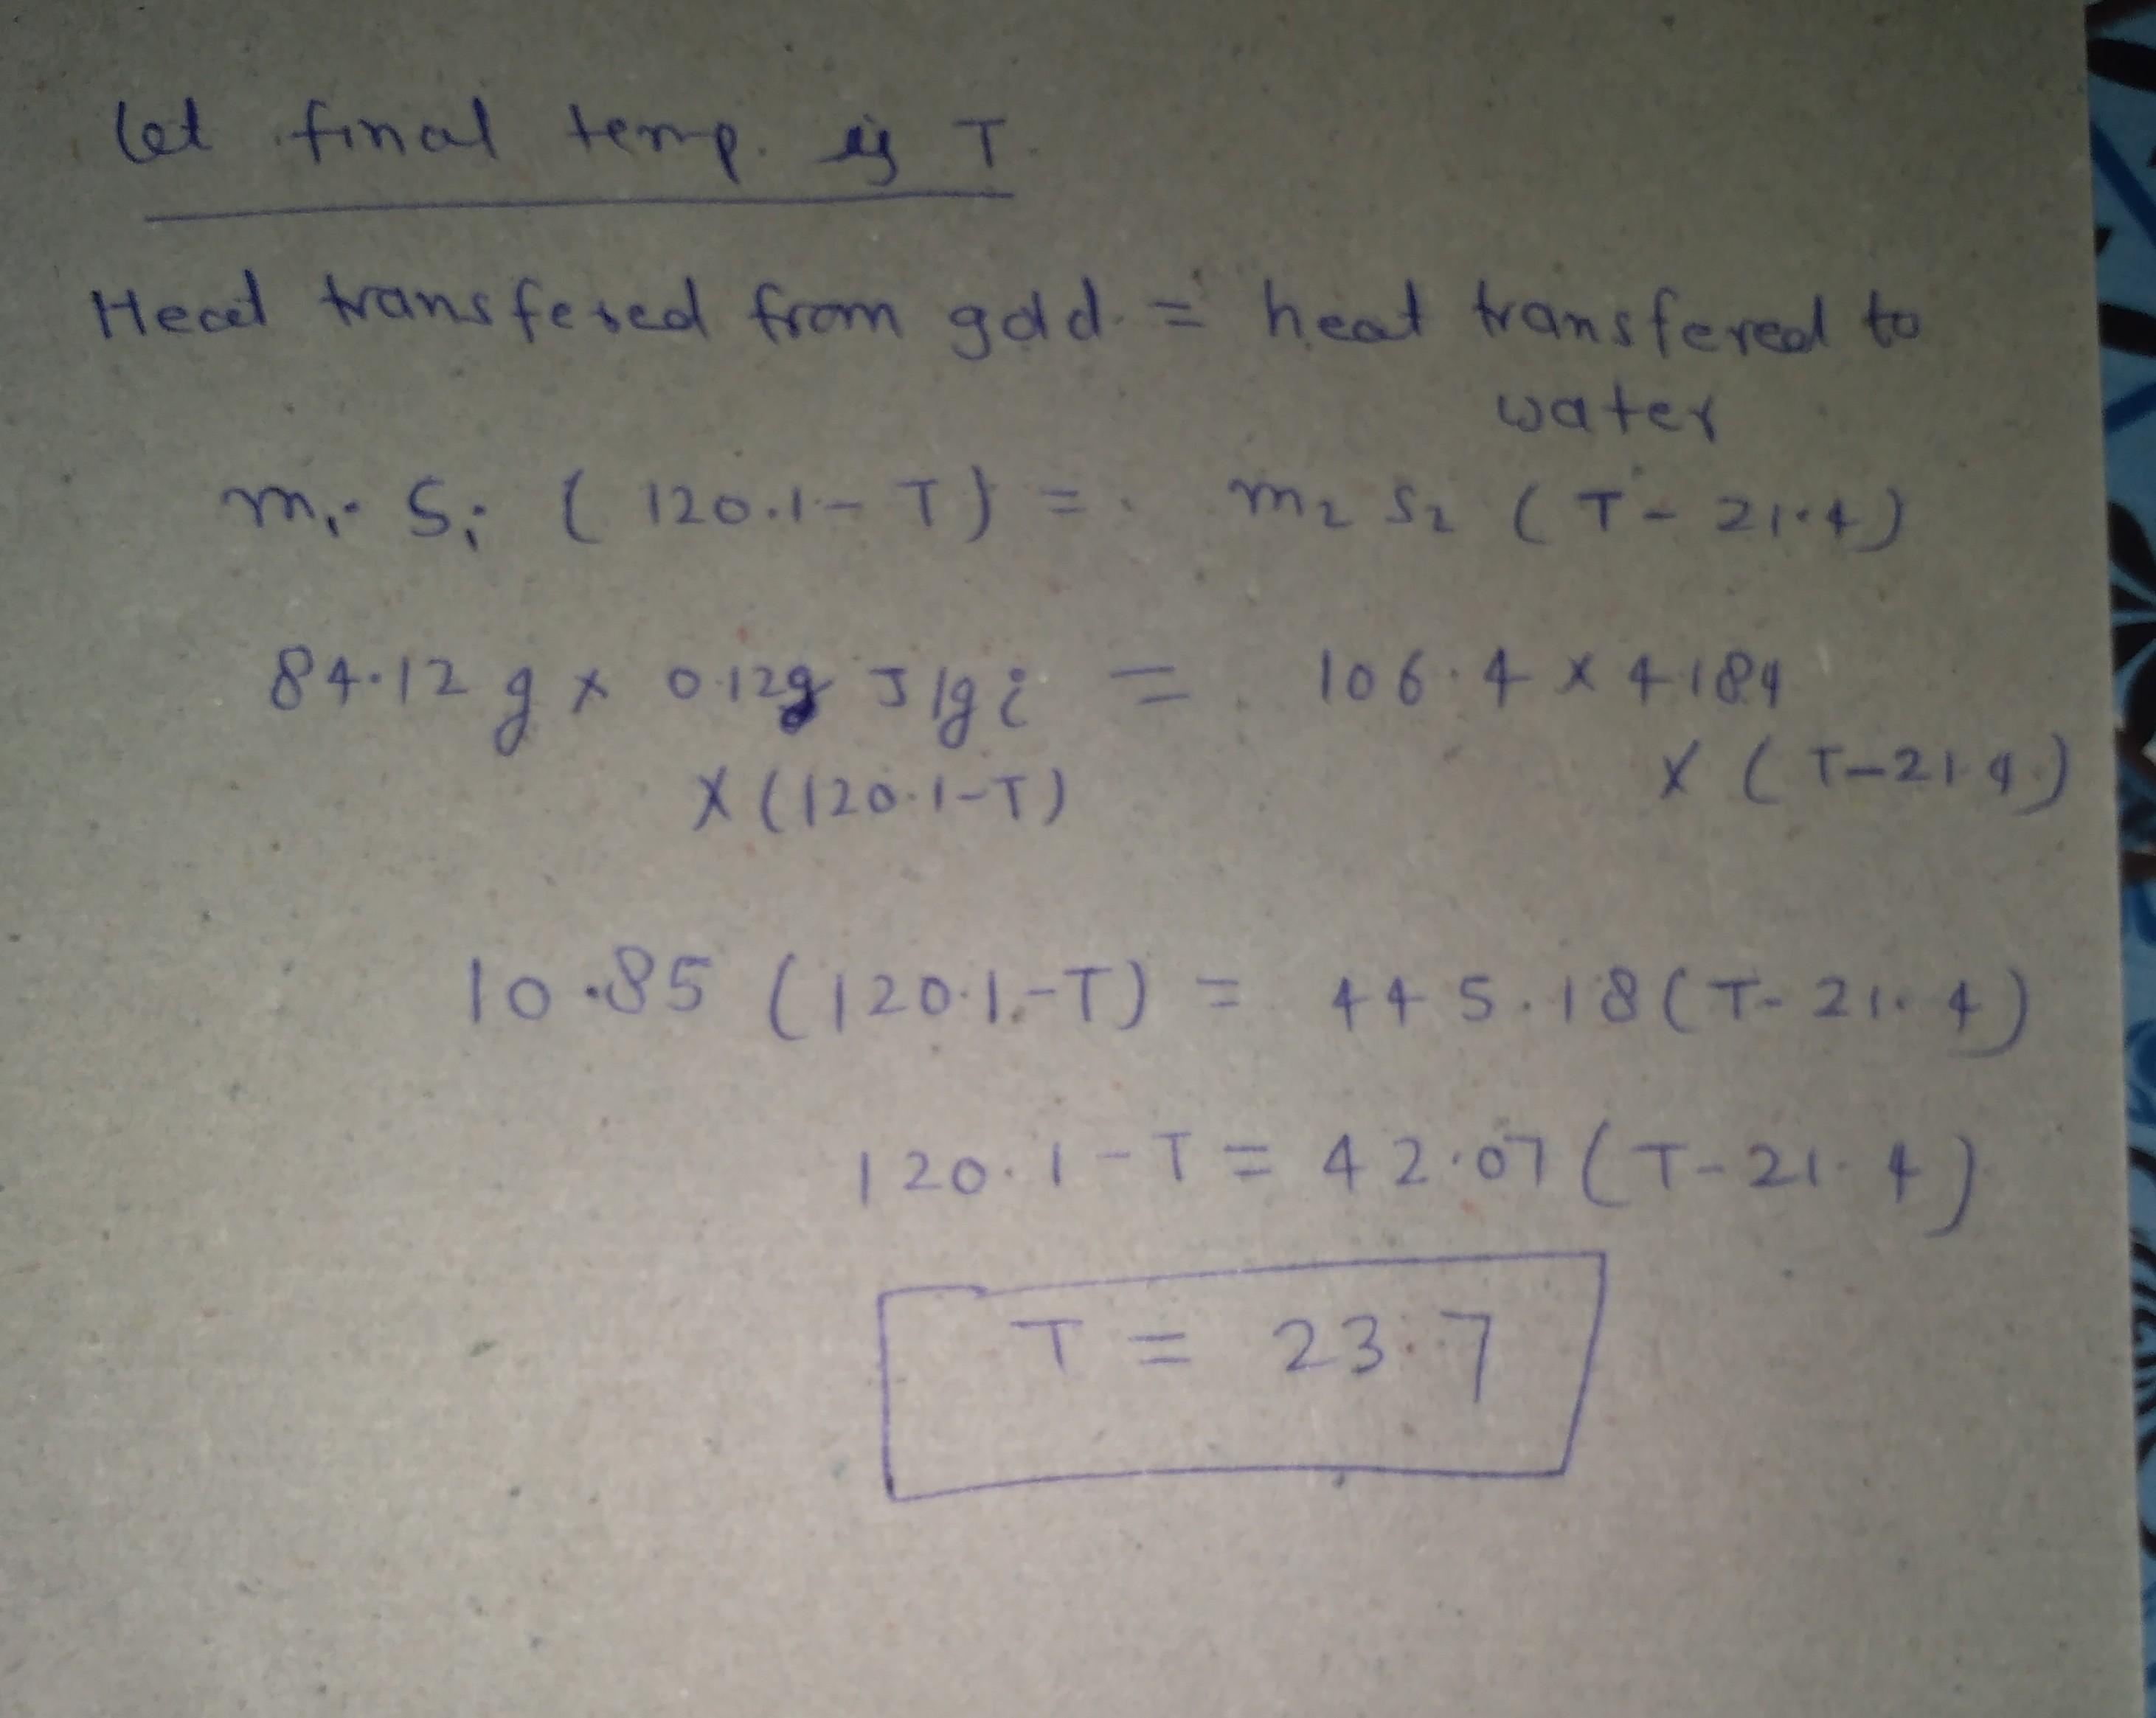 let final temp. is T.
Heat transfered from gold = heat transfered to
water
m₁ S₁ ( 120.1 - T ) = m₂ S₂ ( T - 21.4 )
84.12 g × 0.129 J/g°C = 106.4 × 4.184
× (120.1-T) × ( T-21.4 )
10.85 ( 120.1-T) = 445.18 ( T- 21.4 )
120.1 - T = 42.07 ( T-21.4 )
T = 23.7